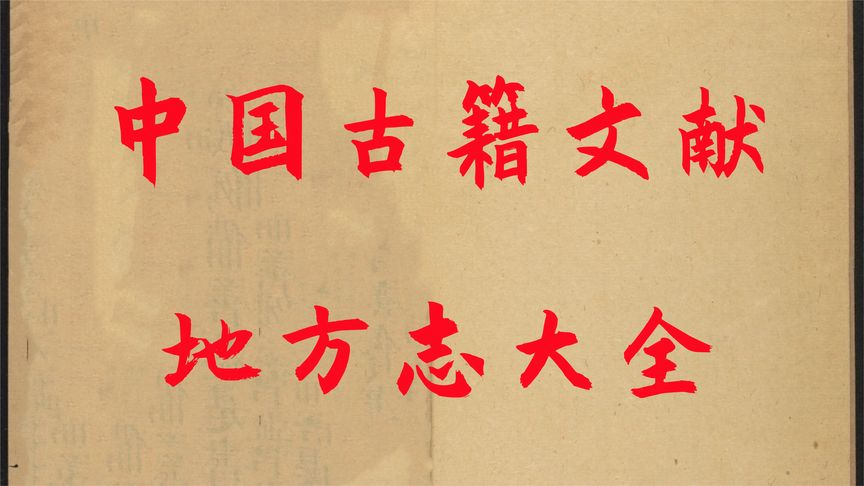 中国古籍文献
地方志大全